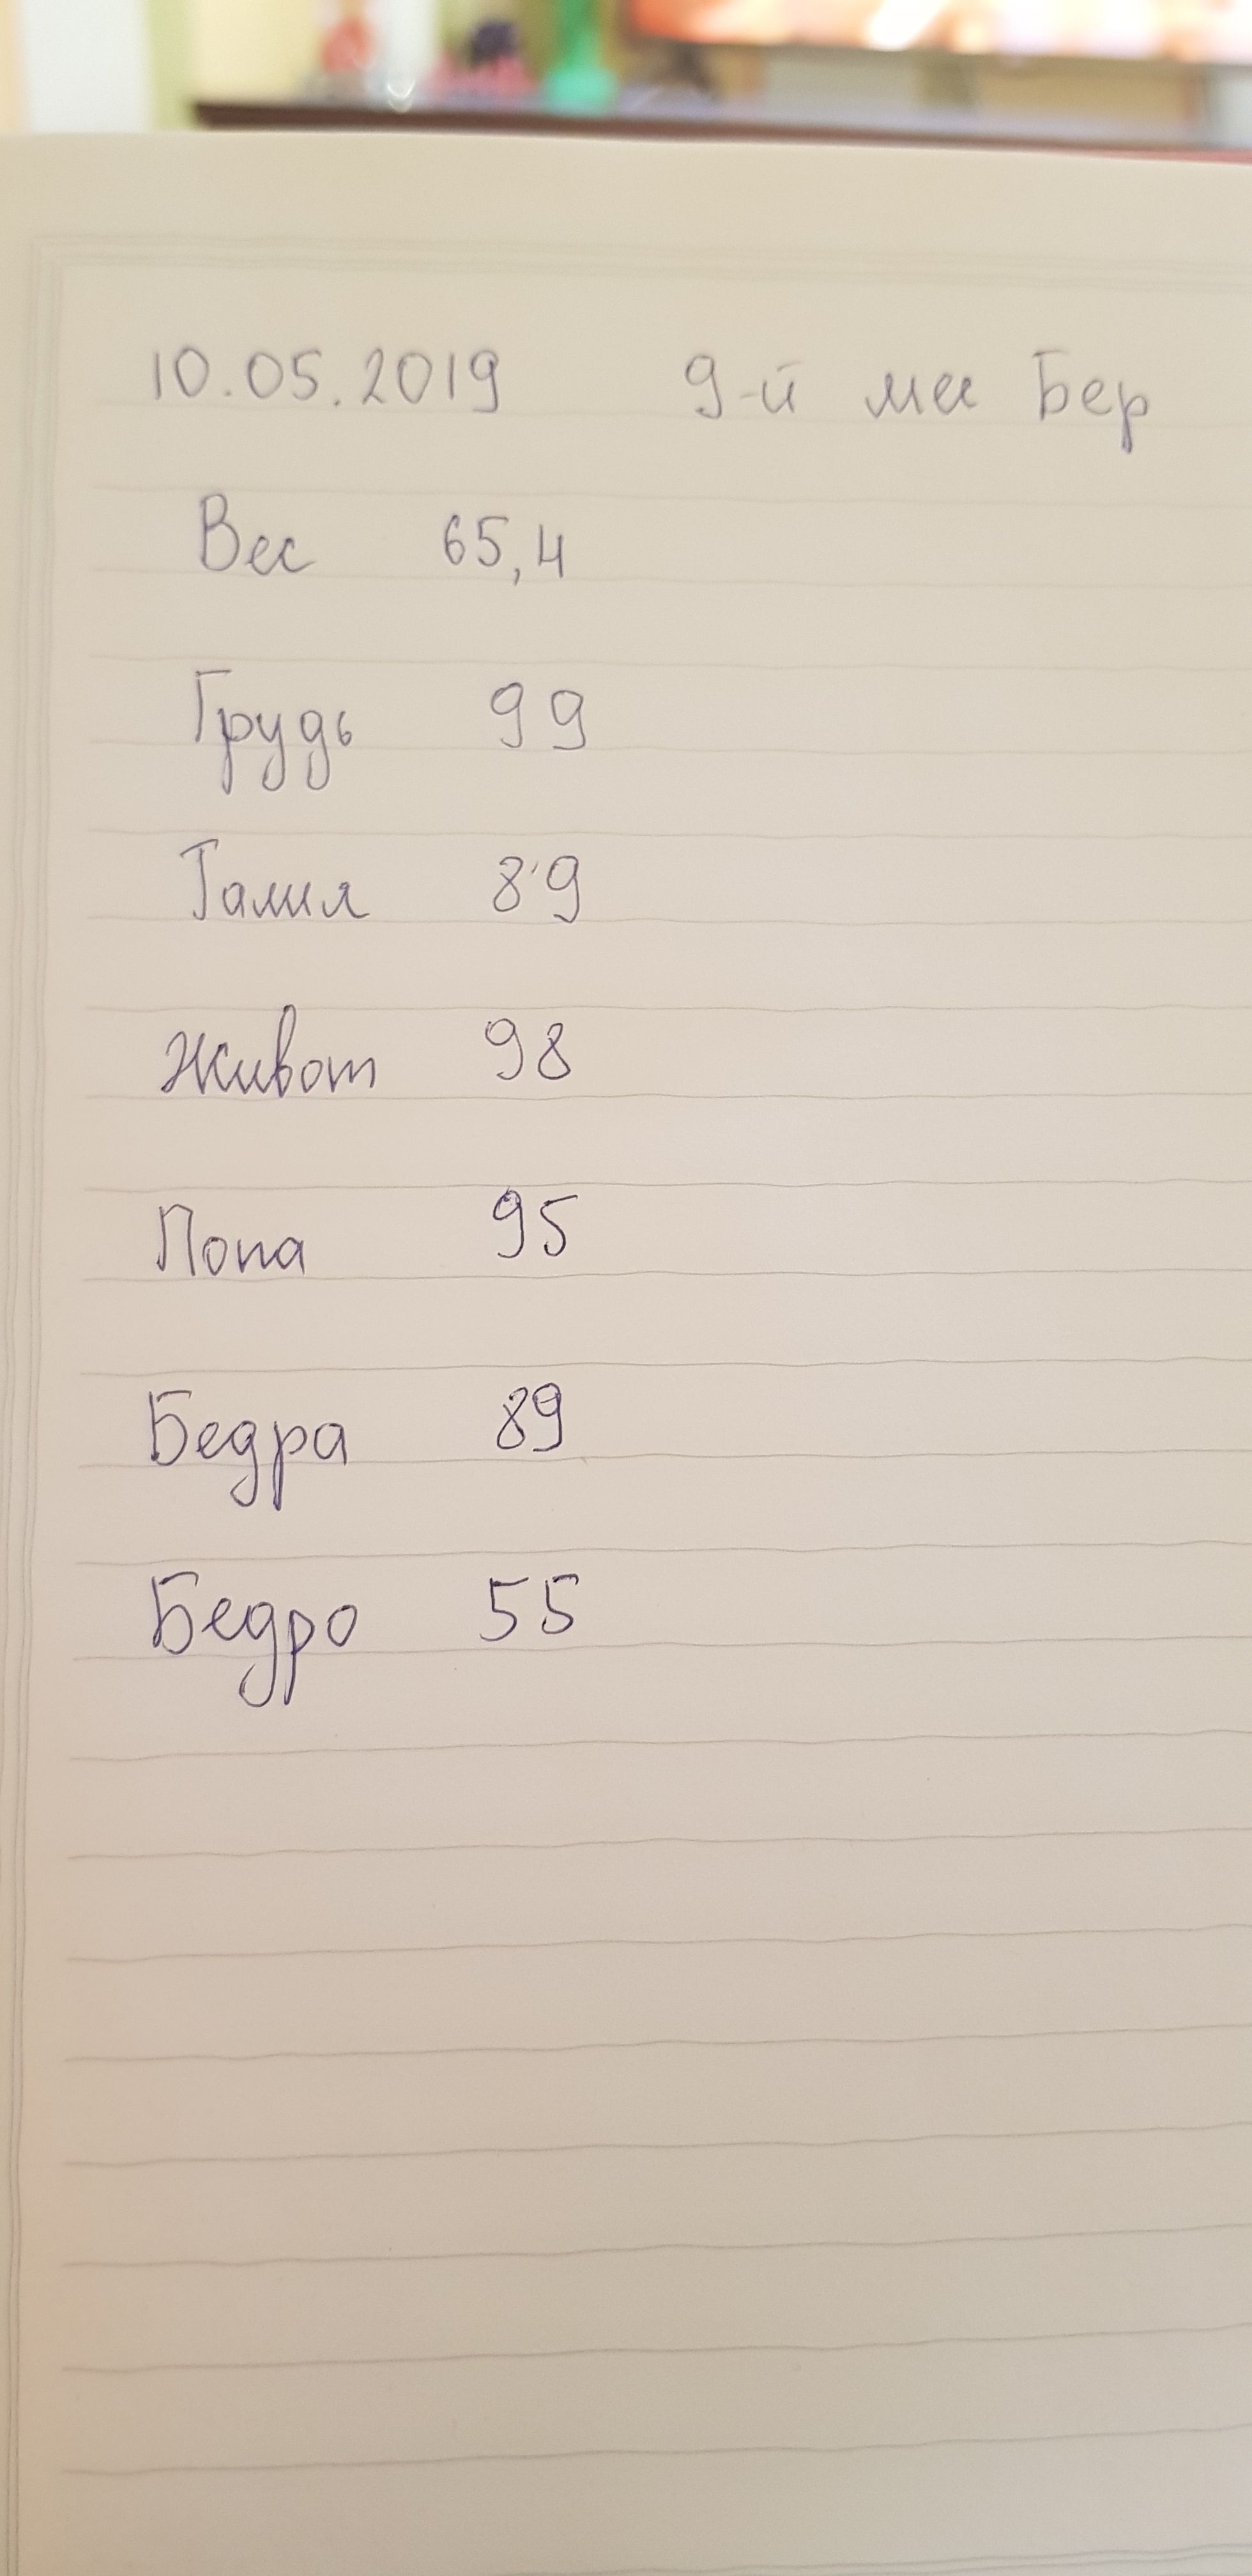 10.05.2019 9-й мес Бер
Вес 65,4
Грудь 99
Талия 89
Живот 98
Попа 95
Бедра 89
Бедро 55